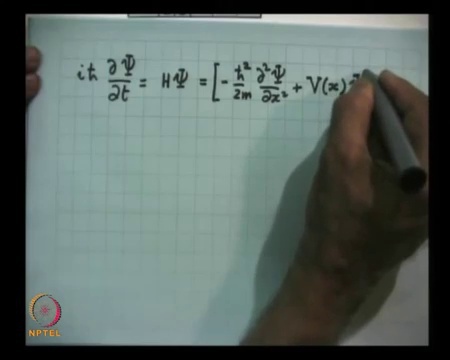 iħ ∂Ψ/∂t = HΨ = [ - ħ²/2m ∂²Ψ/∂x² + V(x)
NPTEL